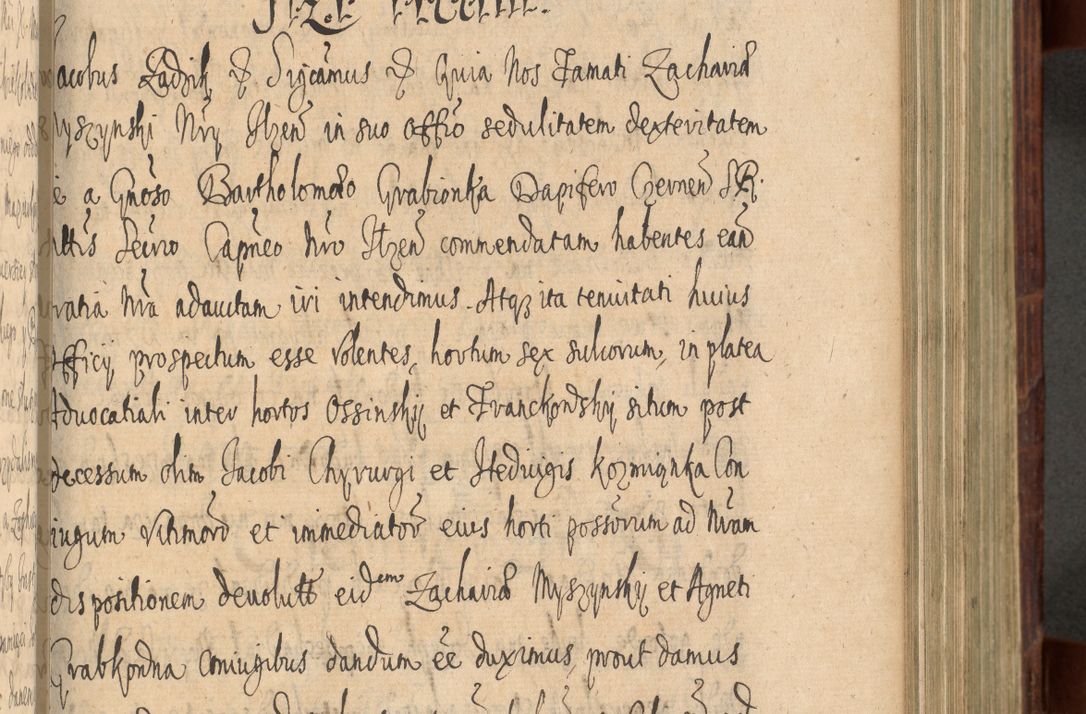 acobus Zadzik & Sigcamus & Quia Nos Famati Zachariæ
Myszynski Nrỹ Ilzen̄ in suo offi͠o sedulitatem dexteritatem
a Gnōso Bartholomæo Grabionka Dapifero Czernen̄ S R.
Ilzen̄ commendatam habentes eān
Nrā adauctam iri intendimus. Atqȝ ita tenuitati huius
Officij prospectum esse volentes, hortum sex sulcorum, in platea
Aduocatiali inter hortos Ossinskij et Franckowskij situm post
decessum olim Jacobi Chyrurgi et Hedivigis Kozmiąnka Con
iugum ultimorū et immediatorū eius horti possōrum ad Nrām
dispositionem deuolutū eid^em Zachariæ Myszynskij et Agneti
Grabkowna coniugibus dandum ēe duximus, prout damus